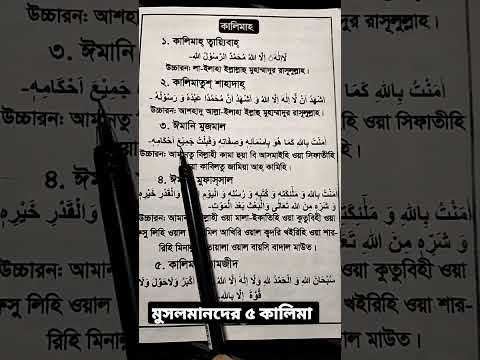 কালিমাহ
১. কালিমাহ্ ত্বায়্যিবাহ্
لَا اِلٰهَ اِلَّا اللهُ مُحَمَّدُ الرَّسُوْلُ اللهِ-
উচ্চারন: লা-ইলাহা ইল্লাল্লাহু মুহাম্মাদুর রাসূলুল্লাহ।
২. কালিমাতুশ্ শাহাদাহ্
اَشْهَدُ اَنْ لَّا اِلٰهَ اِلَّا اللهُ وَ اَشْهَدُ اَنَّ مُحَمَّدًا عَبْدُهٗ وَ رَسُوْلُهٗ-
উচ্চারন: আশহাদু আল্লা-ইলাহা ইল্লাহু মুহাম্মাদুর রাসূলুল্লাহ।
৩. ঈমানি মুজমাল
اٰمَنْتُ بِاللهِ كَمَا هُوَ بِاَسْمَائِهٖ وَصِفَاتِهٖ وَقَبِلْتُ جَمِيْعَ اَحْكَامِهٖ-
উচ্চারন: আমানতু বিল্লাহী কামা হুয়া বি আসমাইহি ওয়া সিফাতীহি
ওয়া কাবিলতু জামিয়া আহ্ কামিহি।
৪. ঈমানি মুফাস্সাল
اٰمَنْتُ بِاللهِ وَ مَلٰئِكَتِهٖ وَ كُتُبِهٖ وَ رُسُلِهٖ وَ الْيَوْمِ وَالْقَدْرِ خَيْرِهٖ
وَ شَرِّهٖ مِنَ اللهِ تَعَالٰى وَالْبَعْثِ بَعْدَ الْمَوْتِ-
উচ্চারন: আমানতু বিল্লাহী ওয়া মালা-ইকাতিহি ওয়া কুতুবিহী ওয়া
রুসু লিহি ওয়াল আখিরি ওয়াল ক্বদরি খইরিহি ওয়া শার-
রিহি মিনাল্লাহি তায়ালা ওয়াল বায়সি বাদাল মাউত।
৫. কালিমা তামজীদ
سُبْحَانَ اللهِ وَ الْحَمْدُ لِلّٰهِ وَلَا اِلٰهَ اِلَّا اللهُ اَكْبَرُ وَلَاحَوْلَ وَلَا
قُوَّةَ اِلَّا بِاللهِ-
মুসলমানদের ৫ কালিমা